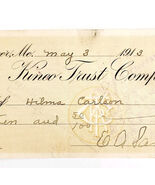 or, Mo. May 3 1913
Kinco Trust Comp
of Hilma Carlson
en and 50/100